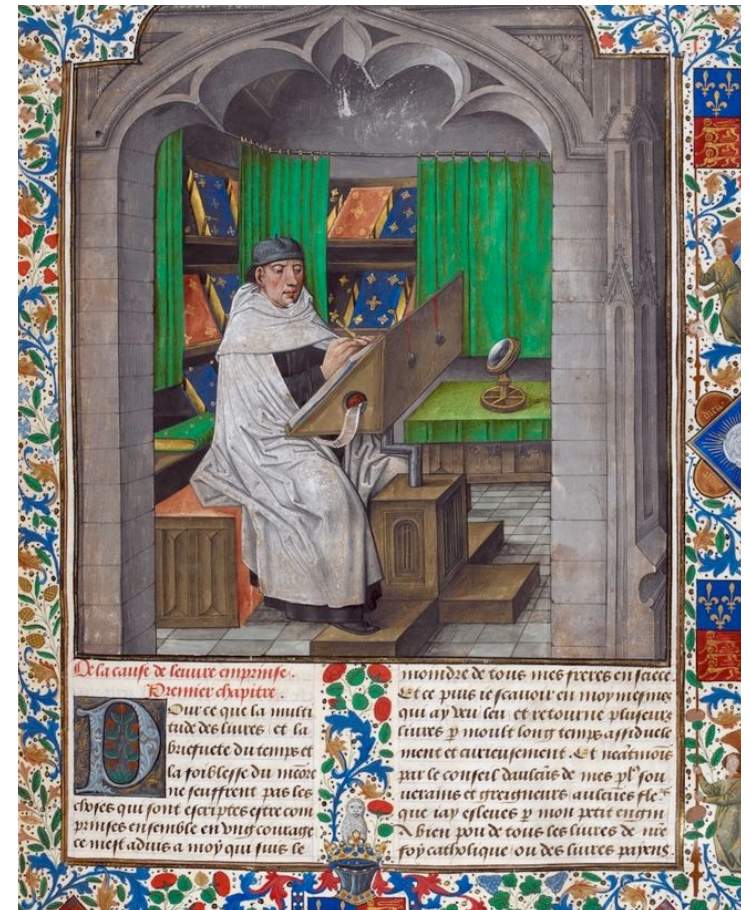 De la cause de leuure emprinse.
Premier chapitre.
Pour ce que la multi
tude des liures et la
briefuete du temps et
la foiblesse du memoire
ne seuffrent pas les
choses qui sont escriptes estre com
prinses ensemble en vng courage
ce mest aduis a moy qui suis le
moindre de tous mes freres en
Et ce puis ie scauoir en moy mesmes
qui ay veu leu et retourne pluseurs
liures p moult long temps assiduele
ment et curieusement. Et neatmois
par le conseil daulcus de mes pl' sou
uerains et greigneurs aulcunes
que iay esleues p mon petit engin
A bien pou de tous les liures de nre
foy catholique ou des liures payens
dieu